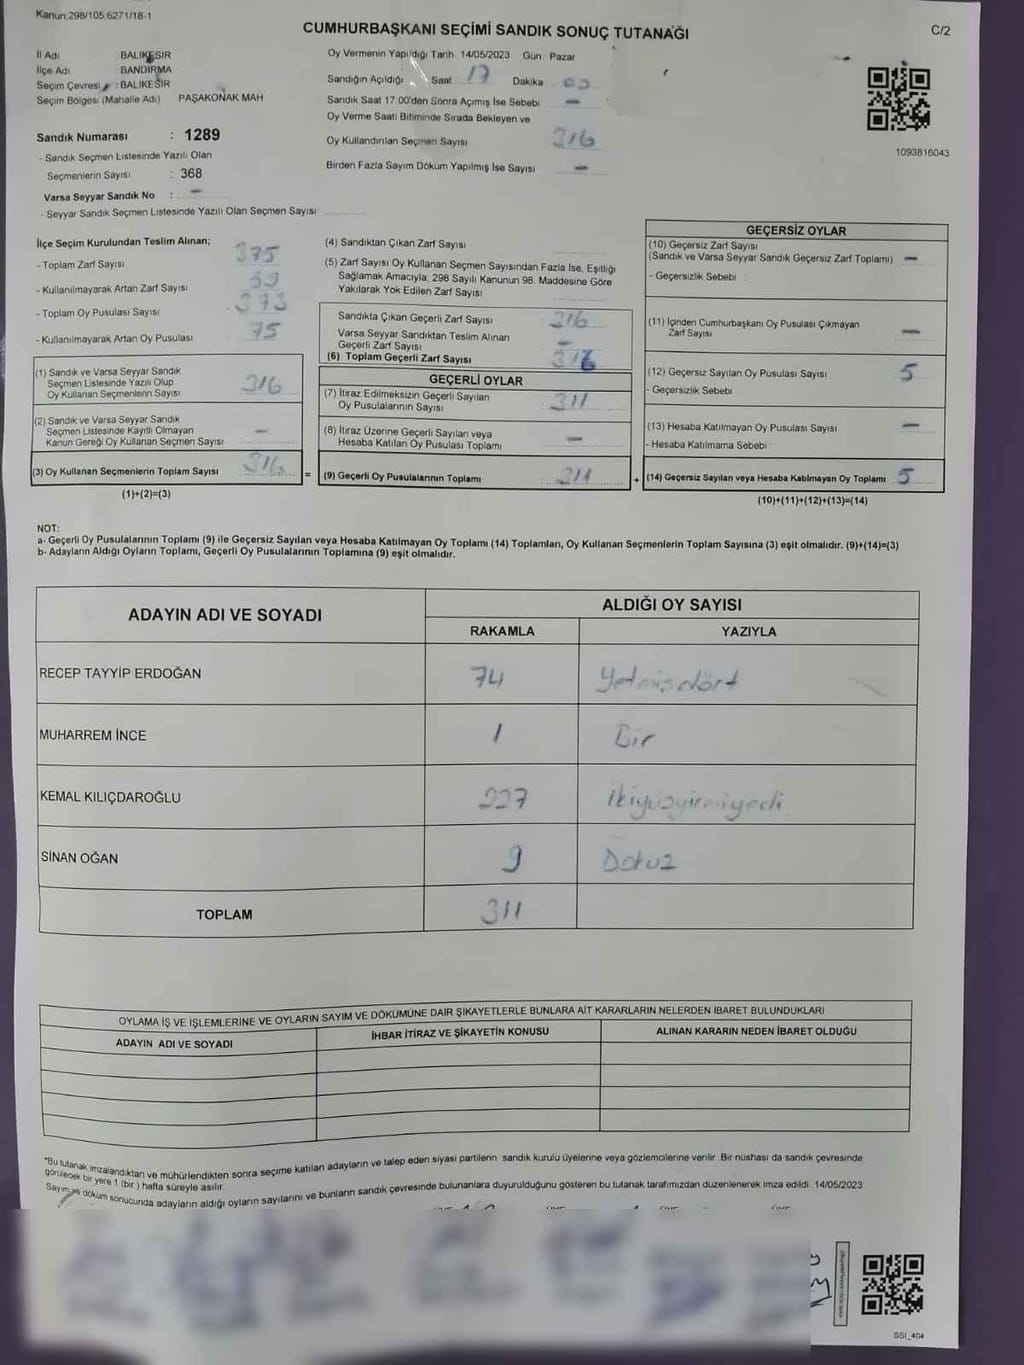 Kanun:298/105,6271/18-1
CUMHURBAŞKANI SEÇİMİ SANDIK SONUÇ TUTANAĞI
C/2
İl Adı BALIKESİR
İlçe Adı BANDIRMA
Seçim Çevresi : BALIKESİR
Seçim Bölgesi (Mahalle Adı) PAŞAKONAK MAH
Oy Vermenin Yapıldığı Tarih 14/05/2023 Gün Pazar
Sandığın Açıldığı Saat 17 Dakika
Sandık Saat 17.00'den Sonra Açımış İse Sebebi —
Oy Verme Saati Bitiminde Sırada Bekleyen ve
Oy Kullandırılan Seçmen Sayısı 316
Birden Fazla Sayım Döküm Yapılmış İse Sayısı —
1093816043
Sandık Numarası : 1289
- Sandık Seçmen Listesinde Yazılı Olan
Seçmenlerin Sayısı : 368
Varsa Seyyar Sandık No : —
- Seyyar Sandık Seçmen Listesinde Yazılı Olan Seçmen Sayısı
İlçe Seçim Kurulundan Teslim Alınan;
- Toplam Zarf Sayısı 375
- Kullanılmayarak Artan Zarf Sayısı
- Toplam Oy Pusulası Sayısı
- Kullanılmayarak Artan Oy Pusulası 75
(1) Sandık ve Varsa Seyyar Sandık
Seçmen Listesinde Yazılı Olup
Oy Kullanan Seçmenlerin Sayısı 316
(2) Sandık ve Varsa Seyyar Sandık
Seçmen Listesinde Kayıtlı Olmayan
Kanun Gereği Oy Kullanan Seçmen Sayısı —
(3) Oy Kullanan Seçmenlerin Toplam Sayısı 316 =
(1)+(2)=(3)
(4) Sandıktan Çıkan Zarf Sayısı
(5) Zarf Sayısı Oy Kullanan Seçmen Sayısından Fazla İse, Eşitliği
Sağlamak Amacıyla, 298 Sayılı Kanunun 98. Maddesine Göre
Yakılarak Yok Edilen Zarf Sayısı
Sandıkta Çıkan Geçerli Zarf Sayısı 316
Varsa Seyyar Sandıktan Teslim Alınan
Geçerli Zarf Sayısı —
(6) Toplam Geçerli Zarf Sayısı 316
GEÇERLİ OYLAR
(7) İtiraz Edilmeksizin Geçerli Sayılan
Oy Pusulalarının Sayısı 311
(8) İtiraz Üzerine Geçerli Sayılan veya
Hesaba Katılan Oy Pusulası Toplamı —
(9) Geçerli Oy Pusulalarının Toplamı 311 +
GEÇERSİZ OYLAR
(10) Geçersiz Zarf Sayısı
(Sandık ve Varsa Seyyar Sandık Geçersiz Zarf Toplamı) —
- Geçersizlik Sebebi :
(11) İçinden Cumhurbaşkanı Oy Pusulası Çıkmayan
Zarf Sayısı —
(12) Geçersiz Sayılan Oy Pusulası Sayısı 5
- Geçersizlik Sebebi :
(13) Hesaba Katılmayan Oy Pusulası Sayısı —
- Hesaba Katılmama Sebebi :
(14) Geçersiz Sayılan veya Hesaba Katılmayan Oy Toplamı 5
(10)+(11)+(12)+(13)=(14)
NOT:
a- Geçerli Oy Pusulalarının Toplamı (9) ile Geçersiz Sayılan veya Hesaba Katılmayan Oy Toplamı (14) Toplamları, Oy Kullanan Seçmenlerin Toplam Sayısına (3) eşit olmalıdır. (9)+(14)=(3)
b- Adayların Aldığı Oyların Toplamı, Geçerli Oy Pusulalarının Toplamına (9) eşit olmalıdır.
ADAYIN ADI VE SOYADI
ALDIĞI OY SAYISI
RAKAMLA YAZIYLA
RECEP TAYYİP ERDOĞAN 74 Yetmişdört
MUHARREM İNCE 1 Bir
KEMAL KILIÇDAROĞLU 227 İkiyüzyirmiyedi
SİNAN OĞAN 9 Dokuz
TOPLAM 311
OYLAMA İŞ VE İŞLEMLERİNE VE OYLARIN SAYIM VE DÖKÜMÜNE DAİR ŞİKAYETLERLE BUNLARA AİT KARARLARIN NELERDEN İBARET BULUNDUKLARI
ADAYIN ADI VE SOYADI İHBAR İTİRAZ VE ŞİKAYETİN KONUSU ALINAN KARARIN NEDEN İBARET OLDUĞU
*Bu tutanak imzalandıktan ve mühürlendikten sonra seçime katılan adayların ve talep eden siyasi partilerin sandık kurulu üyelerine veya gözlemcilerine verilir. Bir nüshası da sandık çevresinde
görülecek bir yere 1 (bir) hafta süreyle asılır.
Sayım ve döküm sonucunda adayların aldığı oyların sayılarını ve bunların sandık çevresinde bulunanlara duyurulduğunu gösteren bu tutanak tarafımızdan düzenlenerek imza edildi. 14/05/2023
SSI_404